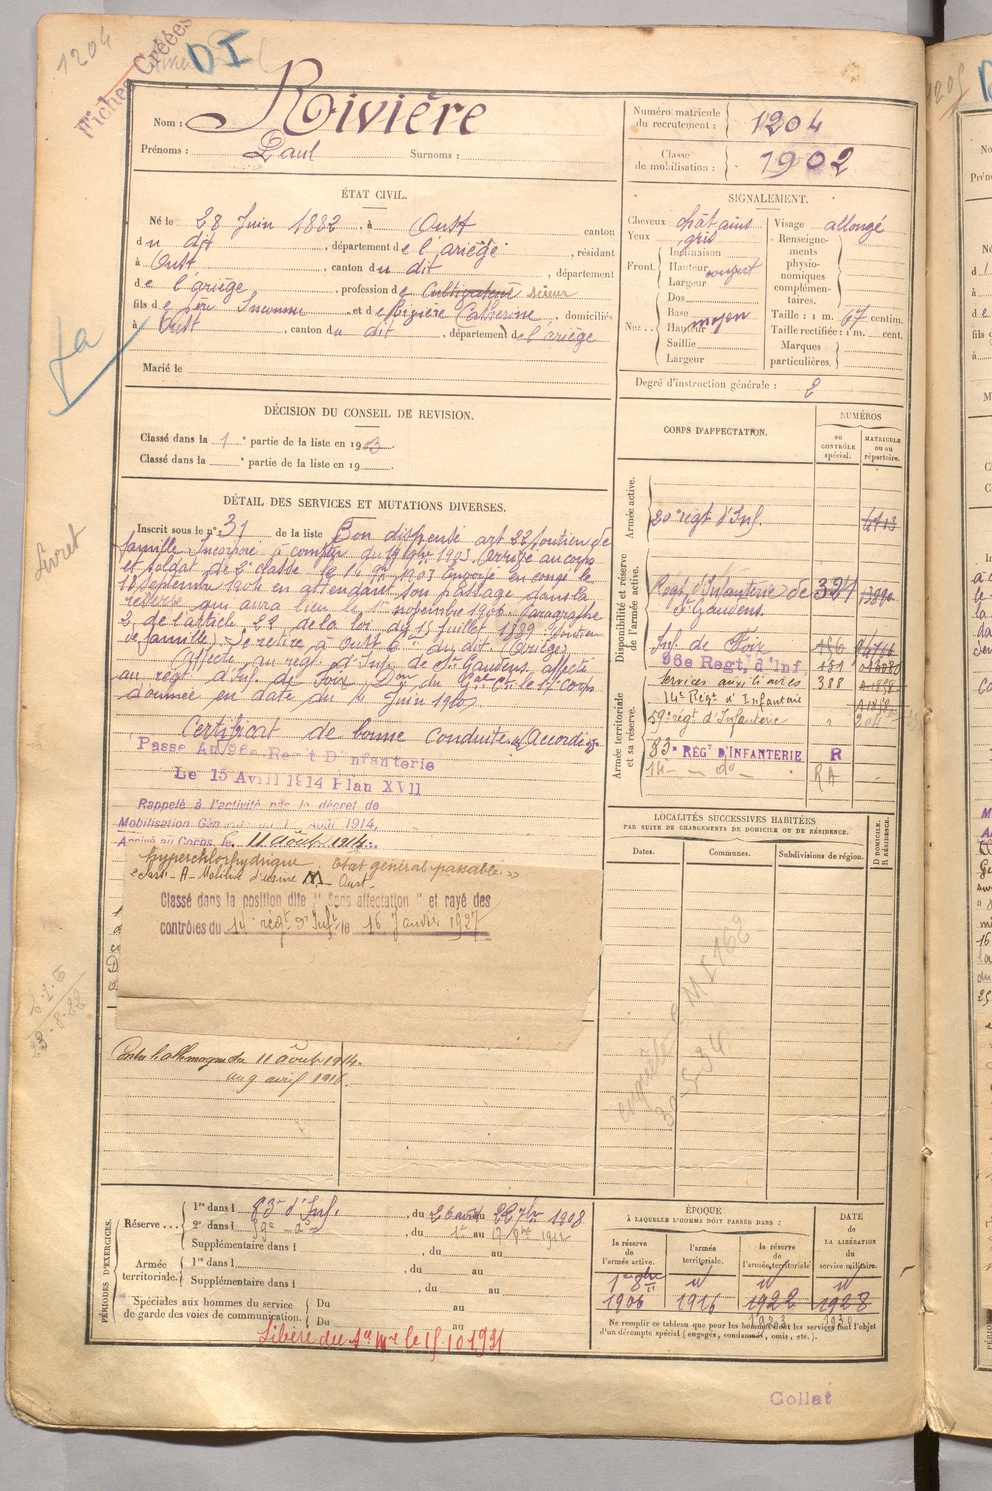 1204
Fiches Créées
DI
Nom : Rivière
Prénoms : Paul Surnoms :
Numéro matricule du recrutement : 1204
Classe de mobilisation : 1902
ÉTAT CIVIL.
Né le 28 Juin 1882, à Oust canton
du dit, département de l'ariège, résidant
à Oust, canton du dit, département
de l'ariège, profession de Cultivateur scieur
fils de père Inconnu et de Rivière Catherine, domiciliés
à Oust, canton du dit, département de l'ariège
Marié le
SIGNALEMENT.
Cheveux châtains
Yeux gris
Front. Inclinaison
Hauteur
Largeur
Nez. Dos
Base
Hauteur moyen
Saillie
Largeur
Visage allongé
Renseignements physionomiques complémentaires.
Taille : 1 m. 67 centim.
Taille rectifiée : 1 m. cent.
Marques particulières.
Degré d'instruction générale : 2
DÉCISION DU CONSEIL DE REVISION.
Classé dans la 1e partie de la liste en 1903.
Classé dans la e partie de la liste en 19 .
DÉTAIL DES SERVICES ET MUTATIONS DIVERSES.
Inscrit sous le n° 31 de la liste Bon dispensé art 22 soutien de
famille Incorporé à compter du 14 9bre 1903. Arrivé au corps
et soldat de 2e classe le 14 9bre 1903 envoyé en congé le
18 septembre 1904 en attendant son passage dans la
réserve qui aura lieu le 1er novembre 1906. Paragraphe
2 de l'article 22 de la loi du 15 juillet 1889 (soutien
de famille) Se retire à Oust Con du dit (Ariège)
Affecté au régt d'Inf. de St Gaudens, affecté
au régt d'Inf. de Foix Don du Gal Ct le 17e Corps
donnée en date du Juin 190
Certificat de bonne Conduite "Accordé".
Passé Au 96e Reg't D'Infanterie
Le 15 Avril 1914 Plan XVII
Rappelé à l'activité par le décret de
Mobilisation Générale du 1er Août 1914.
Arrivé au Corps le 11 août 1914.
hyperchlorhydrique. Etat général passable. »
Oust
Classé dans la position dite "Sans affectation" et rayé des
contrôles du 14e régt d'Inf. le 16 Janvier 1927
Contre l'allemagne du 11 août 1914
au 9 avril 1916
CORPS D'AFFECTATION.
NUMÉROS
au contrôle spécial.
MATRICULE ou au répertoire.
Armée active.
20e régt d'Inf.
Disponibilité et réserve de l'armée active.
Régt d'Infanterie de St Gaudens.
Inf. de Foix
96e Regt. d'Inf
Armée territoriale et sa réserve.
Services auxiliaires 388
14e Régt d'Infanterie
59e régt d'Infanterie
83e RÉGT D'INFANTERIE R
14 — do — RA
LOCALITÉS SUCCESSIVES HABITÉES
PAR SUITE DE CHANGEMENTS DE DOMICILE OU DE RÉSIDENCE.
Dates.
Communes.
Subdivisions de région.
D DOMICILE. R RÉSIDENCE.
30-5-34
fa
Livret
PÉRIODES D'EXERCICES.
Réserve... 1re dans l 83e d'Inf., du 26 août au 22 7bre 1908
2e dans l 59e do, du 1er au 17 1912
Supplémentaire dans l , du au
Armée territoriale. 1re dans l , du au
Supplémentaire dans l , du au
Spéciales aux hommes du service de garde des voies de communication. Du au
Du au
Libéré du le 15.10 1931
ÉPOQUE
À LAQUELLE L'HOMME DOIT PASSER DANS :
la réserve de l'armée active.
l'armée territoriale.
la réserve de l'armée territoriale
DATE DE LA LIBÉRATION du service militaire.
1er 9bre 1906
1916
1922
1928
Ne remplir ce tableau que pour les hommes dont les services font l'objet
d'un décompte spécial (engagés, condamnés, omis, etc.).
Collat